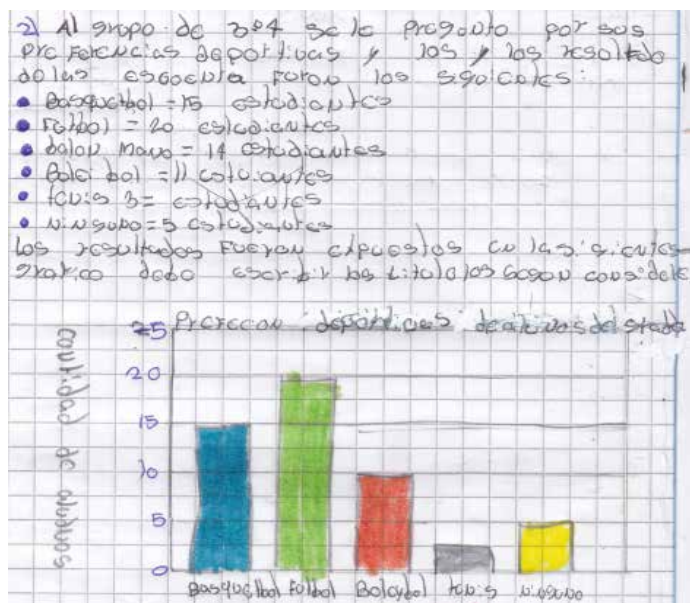 2) Al grupo de 3º4 se le pregonto por sus
preferencias deportivas y los y los resoltado
do las escoenta foron los sguicntes:
• Basquetbol = 15 estodiantes
• Fotbol = 20 estodiantes
• balon mano = 14 estodiantes
• Bolei bol = 11 estuiantes
• tenis 3 = estodiantes
• ninguno = 5 estodiantes
los resultados fueron expuestos en las sigientes
grafico debo escribir los titulo los
25 deportivas
20
15
10
5
0
cantidad de alunos
Basquetbol Fotbol Boleybol tenis ninguno